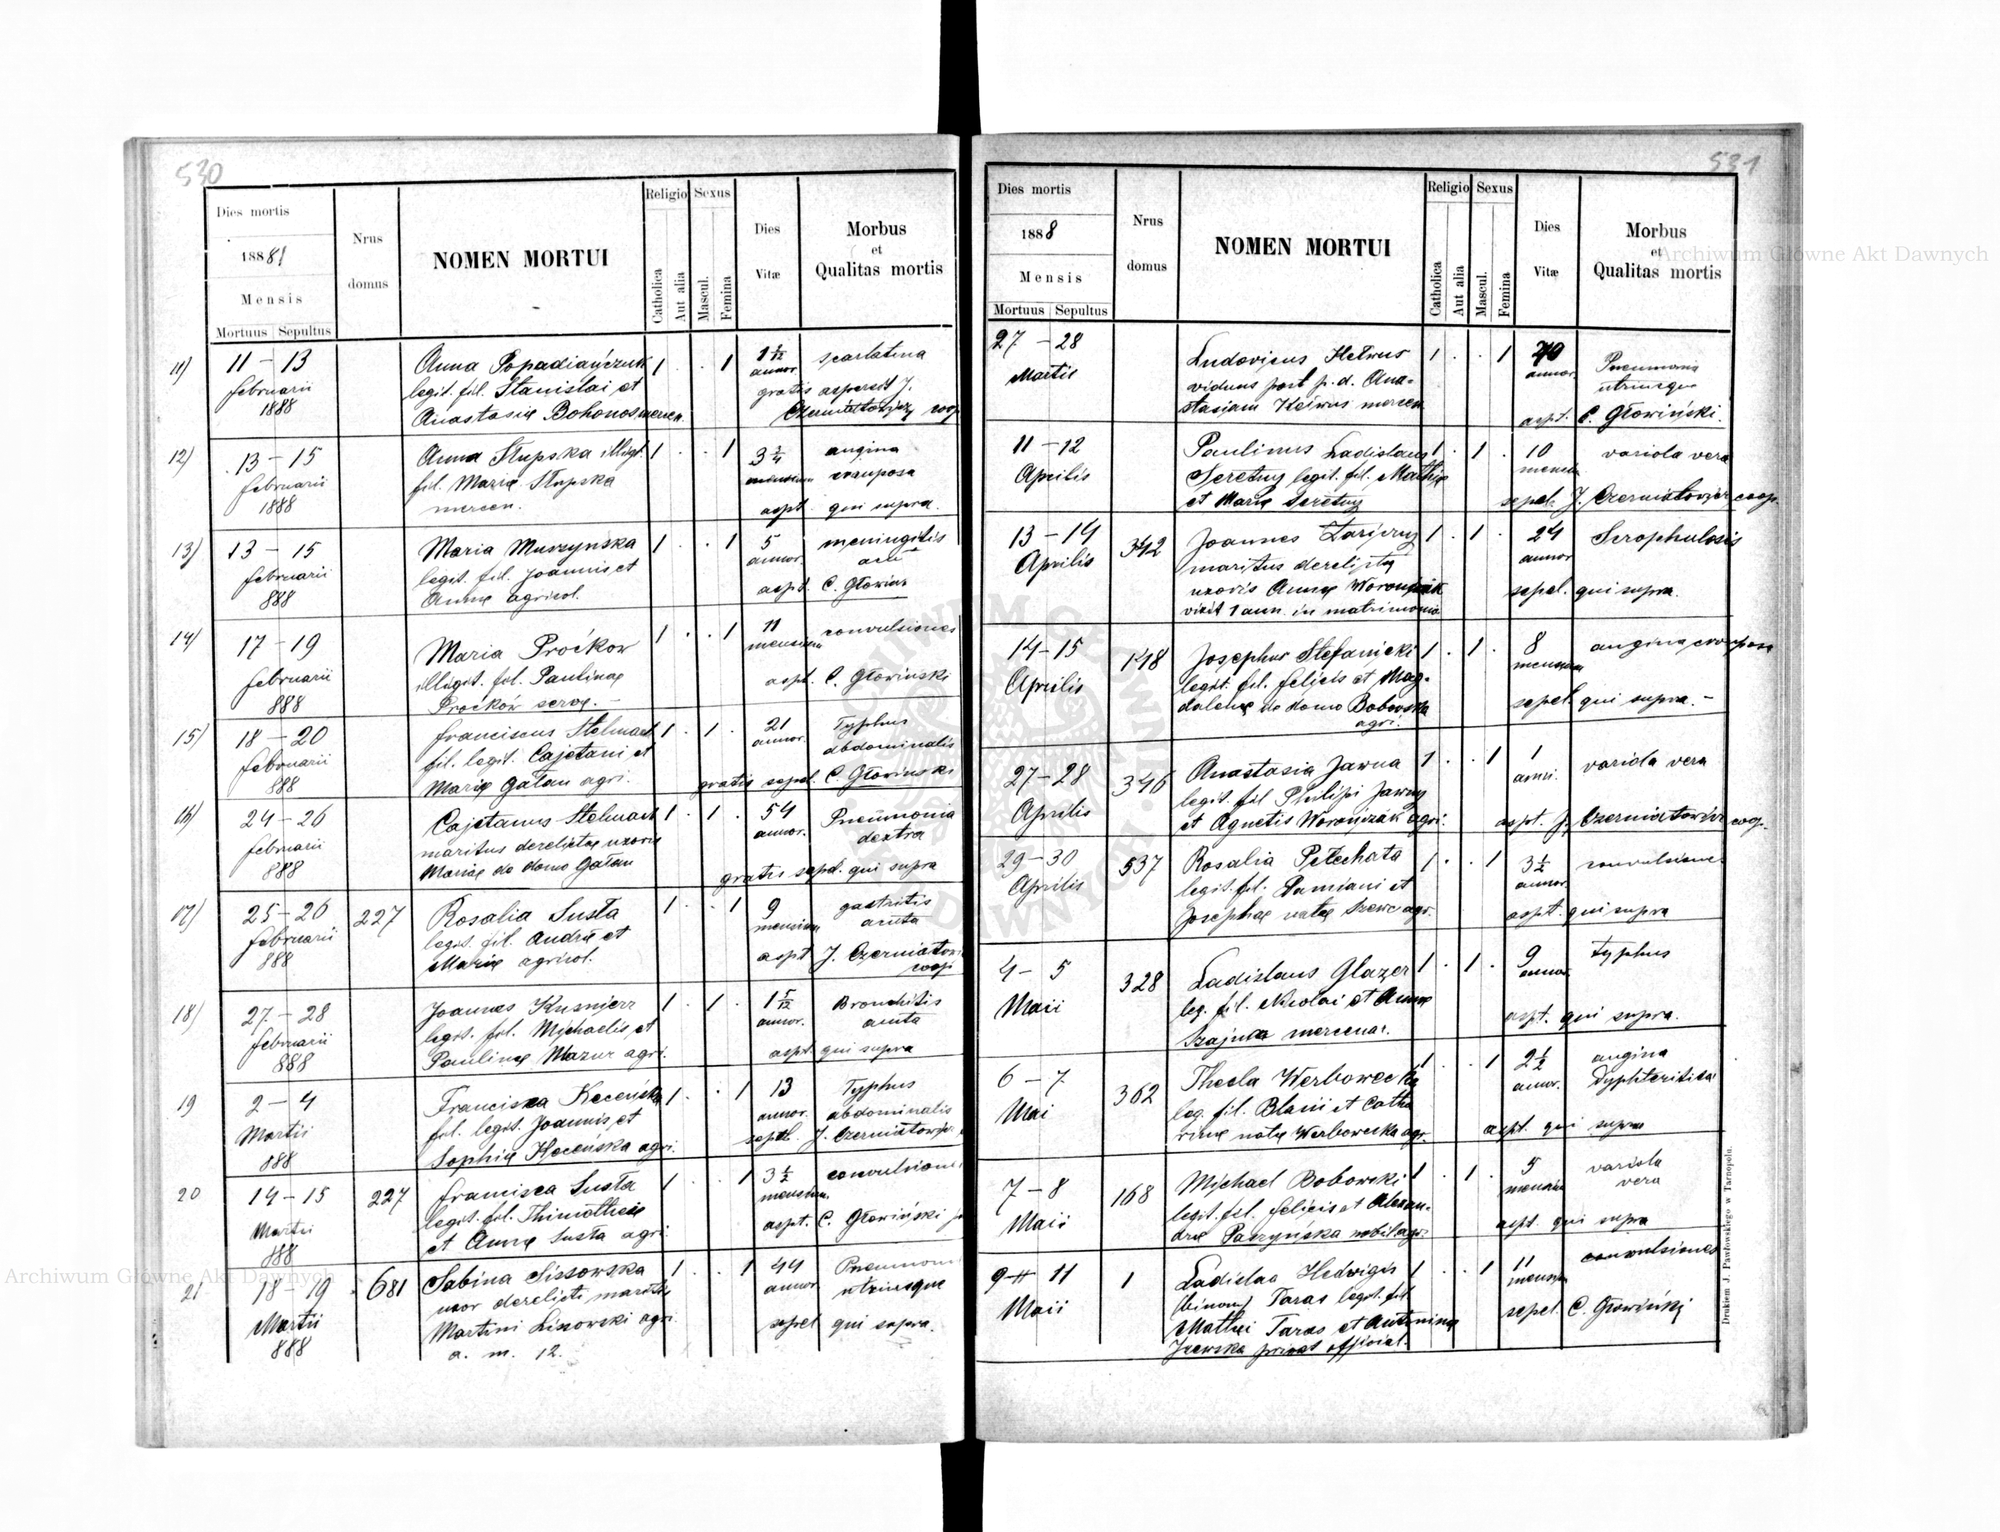 530
Dies mortis
1888
Mensis
Mortuus Sepultus
Nrus
domus
NOMEN MORTUI
Religio
Catholica
Aut alia
Sexus
Mascul.
Femina
Dies
Vitæ
Morbus
et
Qualitas mortis
11) 11 – 13 Anna Popadiańczuk 1 . . 1 1 5/12 scarlatina
februarii legit. fil. Stanislai et annor.
1888 Anastasiæ Bohonos mercen. gratis aspersit J.
Czerniatowicz coop
12) 13 – 15 Anna Słupska illegt. 1 . . 1 3 3/4 angina
februarii fil. Mariæ Słupska mensium crouposa
1888 mercen. aspt. qui supra.
13) 13 – 15 Maria Muszynska 1 . . 1 5 meningitis
februarii legit. fil. Joannis et annor.
888 Annæ agricol. aspt. C. Głowins
14) 17 – 19 Maria Proćkow 1 . . 1 11 convulsiones
februarii illegit. fil. Paulinæ mensium
888 Proćków servæ. – aspt. C. Głowiński
15) 18 – 20 Franciscus Stelmach 1 . 1 . 21 Typhus
februarii fil. legit. Cajetani et annor. abdominalis
888 Mariæ Gałan agri. gratis sepel. C. Głowinski
16) 24 – 26 Cajetanus Stelmach 1 . 1 . 54 Pneumonia
februarii maritus derelictæ uxoris annor. dextra
888 Mariæ de domo Gałan gratis sepel. qui supra
17) 25 – 26 227 Rosalia Susta 1 . . 1 9 gastritis
februarii legit. fil. Andræ et mensium acuta
888 Mariæ agricol. aspt J. Czerniatowi
coop
18) 27 – 28 Joannes Kusnierz 1 . 1 . 1 5/12 Bronchitis
februarii legit. fil. Michaelis et annor. acuta
888 Paulinæ Mazur agri. aspt. qui supra
19 2 – 4 Francisca Keceńska 1 . . 1 13 Typhus
Martii fil. legit. Joannis et annor. abdominalis
888 Sophiæ Keceńska agri. sepel. J. Czerniatowicz
20 14 – 15 227 Francisca Susta 1 . . 1 3 1/2 convulsiones
Martii legit. fil. Thimothei mensium
888 et Annæ Susta agri. aspt. C. Głowiński
21 18 – 19 681 Sabina Lissowska 1 . . 1 44
Martii uxor derelicti mariti annor. utriusque
888 Martini Lisowski agri. sepel qui supra.
a. m. 12.
531
Dies mortis
1888
Mensis
Mortuus Sepultus
Nrus
domus
NOMEN MORTUI
Religio
Catholica
Aut alia
Sexus
Mascul.
Femina
Dies
Vitæ
Morbus
et
Qualitas mortis
27 – 28 Ludovicus 1 . . 1 70 Pneumonia
Martii viduus post p. d. Ana- annor. utriusque
stasiam mercen aspt. C. Głowiński.
11 – 12 Paulinus Ladislaus 1 . 1 . 10 variola vera
Aprilis Seretny legit. fil. Mathiæ mensium
et Mariæ Seretny sepel. J. Czerniatowicz coop.
13 – 14 342 Joannes 1 . 1 . 24 Scrophulosis
Aprilis maritus derelictæ annor
uxoris Annæ Worończak sepel. qui supra.
vixit 1 ann. in matrimonio
14 – 15 148 Josephus Stefanicki 1 . 1 . 8 angina crouposa
Aprilis legit. fil. felicis et Mag- mensium
dalenæ de domo Bobowska sepel. qui supra. –
agri.
27 – 28 346 Anastasia Jawna 1 . . 1 1 variola vera
Aprilis legit. fil Philippi Jawny anni.
et Agnetis Worończak agri. aspt. J. Czerniatowicz coop.
29 – 30 537 Rosalia Pełechata 1 . . 1 3 1/2 convulsiones
Aprilis legit. fil. Damiani et annor.
Josephæ natæ Szewc agr. aspt. qui supra
4 – 5 328 Ladislaus Glazer 1 . 1 . 9 typhus
Maii leg. fil. Nicolai et Annæ annor.
mercenar. aspt. qui supra.
6 – 7 362 Thecla Werbowecka 1 . . 1 2 1/2 angina
Mai leg. fil. Blasii et Catha annor. Dyphteritica
rinæ natæ Werbowecka agr. aspt. qui supra
7 – 8 168 Michael Boborski 1 . 1 . 5 variola
Maii legit. fil. felicis et Alexan- mensium vera
dræ Paszyńska nobil agr. aspt. qui supra
9 – 11 1 Ladislaa Hedwigis 1 . . 1 11 convulsiones
Maii (binom) Taras legit. fil. mensium
Mathei Taras et Antoninæ sepel. C. Głowiński
privat official.
Drukiem J. Pawłowskiego w Tarnopolu.
Archiwum Główne Akt Dawnych
Archiwum Główne Akt Dawnych
ARCHIWUM GŁÓWNE AKT DAWNYCH